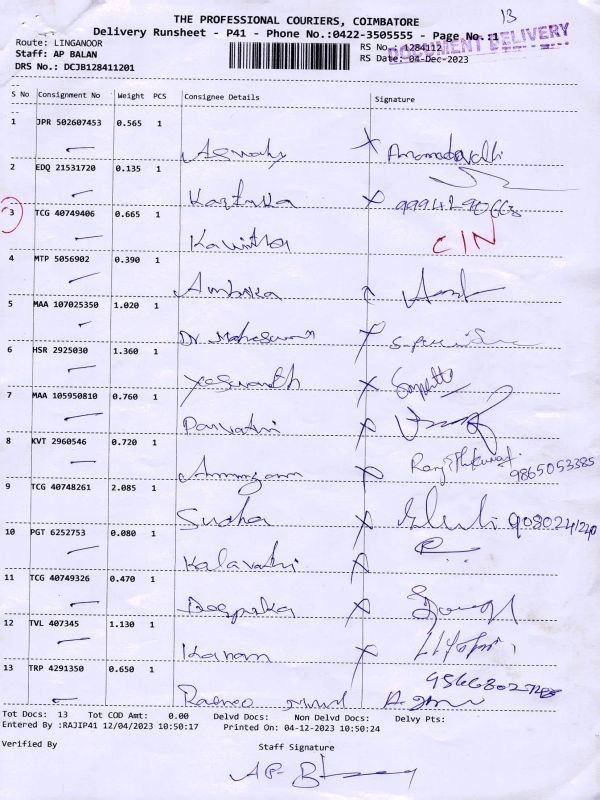 13
THE PROFESSIONAL COURIERS, COIMBATORE
Delivery Runsheet - P41 - Phone No.:0422-3505555 - Page No.:1
DOCUMENT DELIVERY
Route: LINGANOOR
RS No.: 1284112
Staff: AP BALAN
RS Date: 04-Dec-2023
DRS No.: DCJB128411201
S No Consignment No Weight PCS Consignee Details Signature
1 JPR 502607453 0.565 1
2 EDQ 21531720 0.135 1
Kartika X
3 TCG 40749406 0.665 1
Kavitha CIN
4 MTP 5056902 0.390 1
Ambika
5 MAA 107025350 1.020 1
Dr. Maheswari X
6 HSR 2925030 1.360 1
Yaswanth X
7 MAA 105950810 0.760 1
Parvathi X
8 KVT 2960546 0.720 1
Arumugam X Ranjithkumar
9865053385
9 TCG 40748261 2.085 1
Sudha X 9080241240
10 PGT 6252753 0.080 1
Kalavathi X
11 TCG 40749326 0.470 1
Deepika X
12 TVL 407345 1.130 1
Kanam X
13 TRP 4291350 0.650 1
Tot Docs: 13 Tot COD Amt: 0.00 Delvd Docs: Non Delvd Docs: Delvy Pts:
Entered By :RAJIP41 12/04/2023 10:50:17 Printed On: 04-12-2023 10:50:24
Verified By Staff Signature